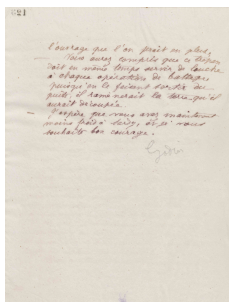 821
l'ouvrage que l'on fait en plus.
Vous avez compris que ce
doit en même temps servir de
à chaque opération de battage
puisqu'en le faisant sortir du
puits, il ramènerait la terre qu'il
aurait découpée.
J'espère que vous avez maintenant
moins froid à et je vous
souhaite bon courage.